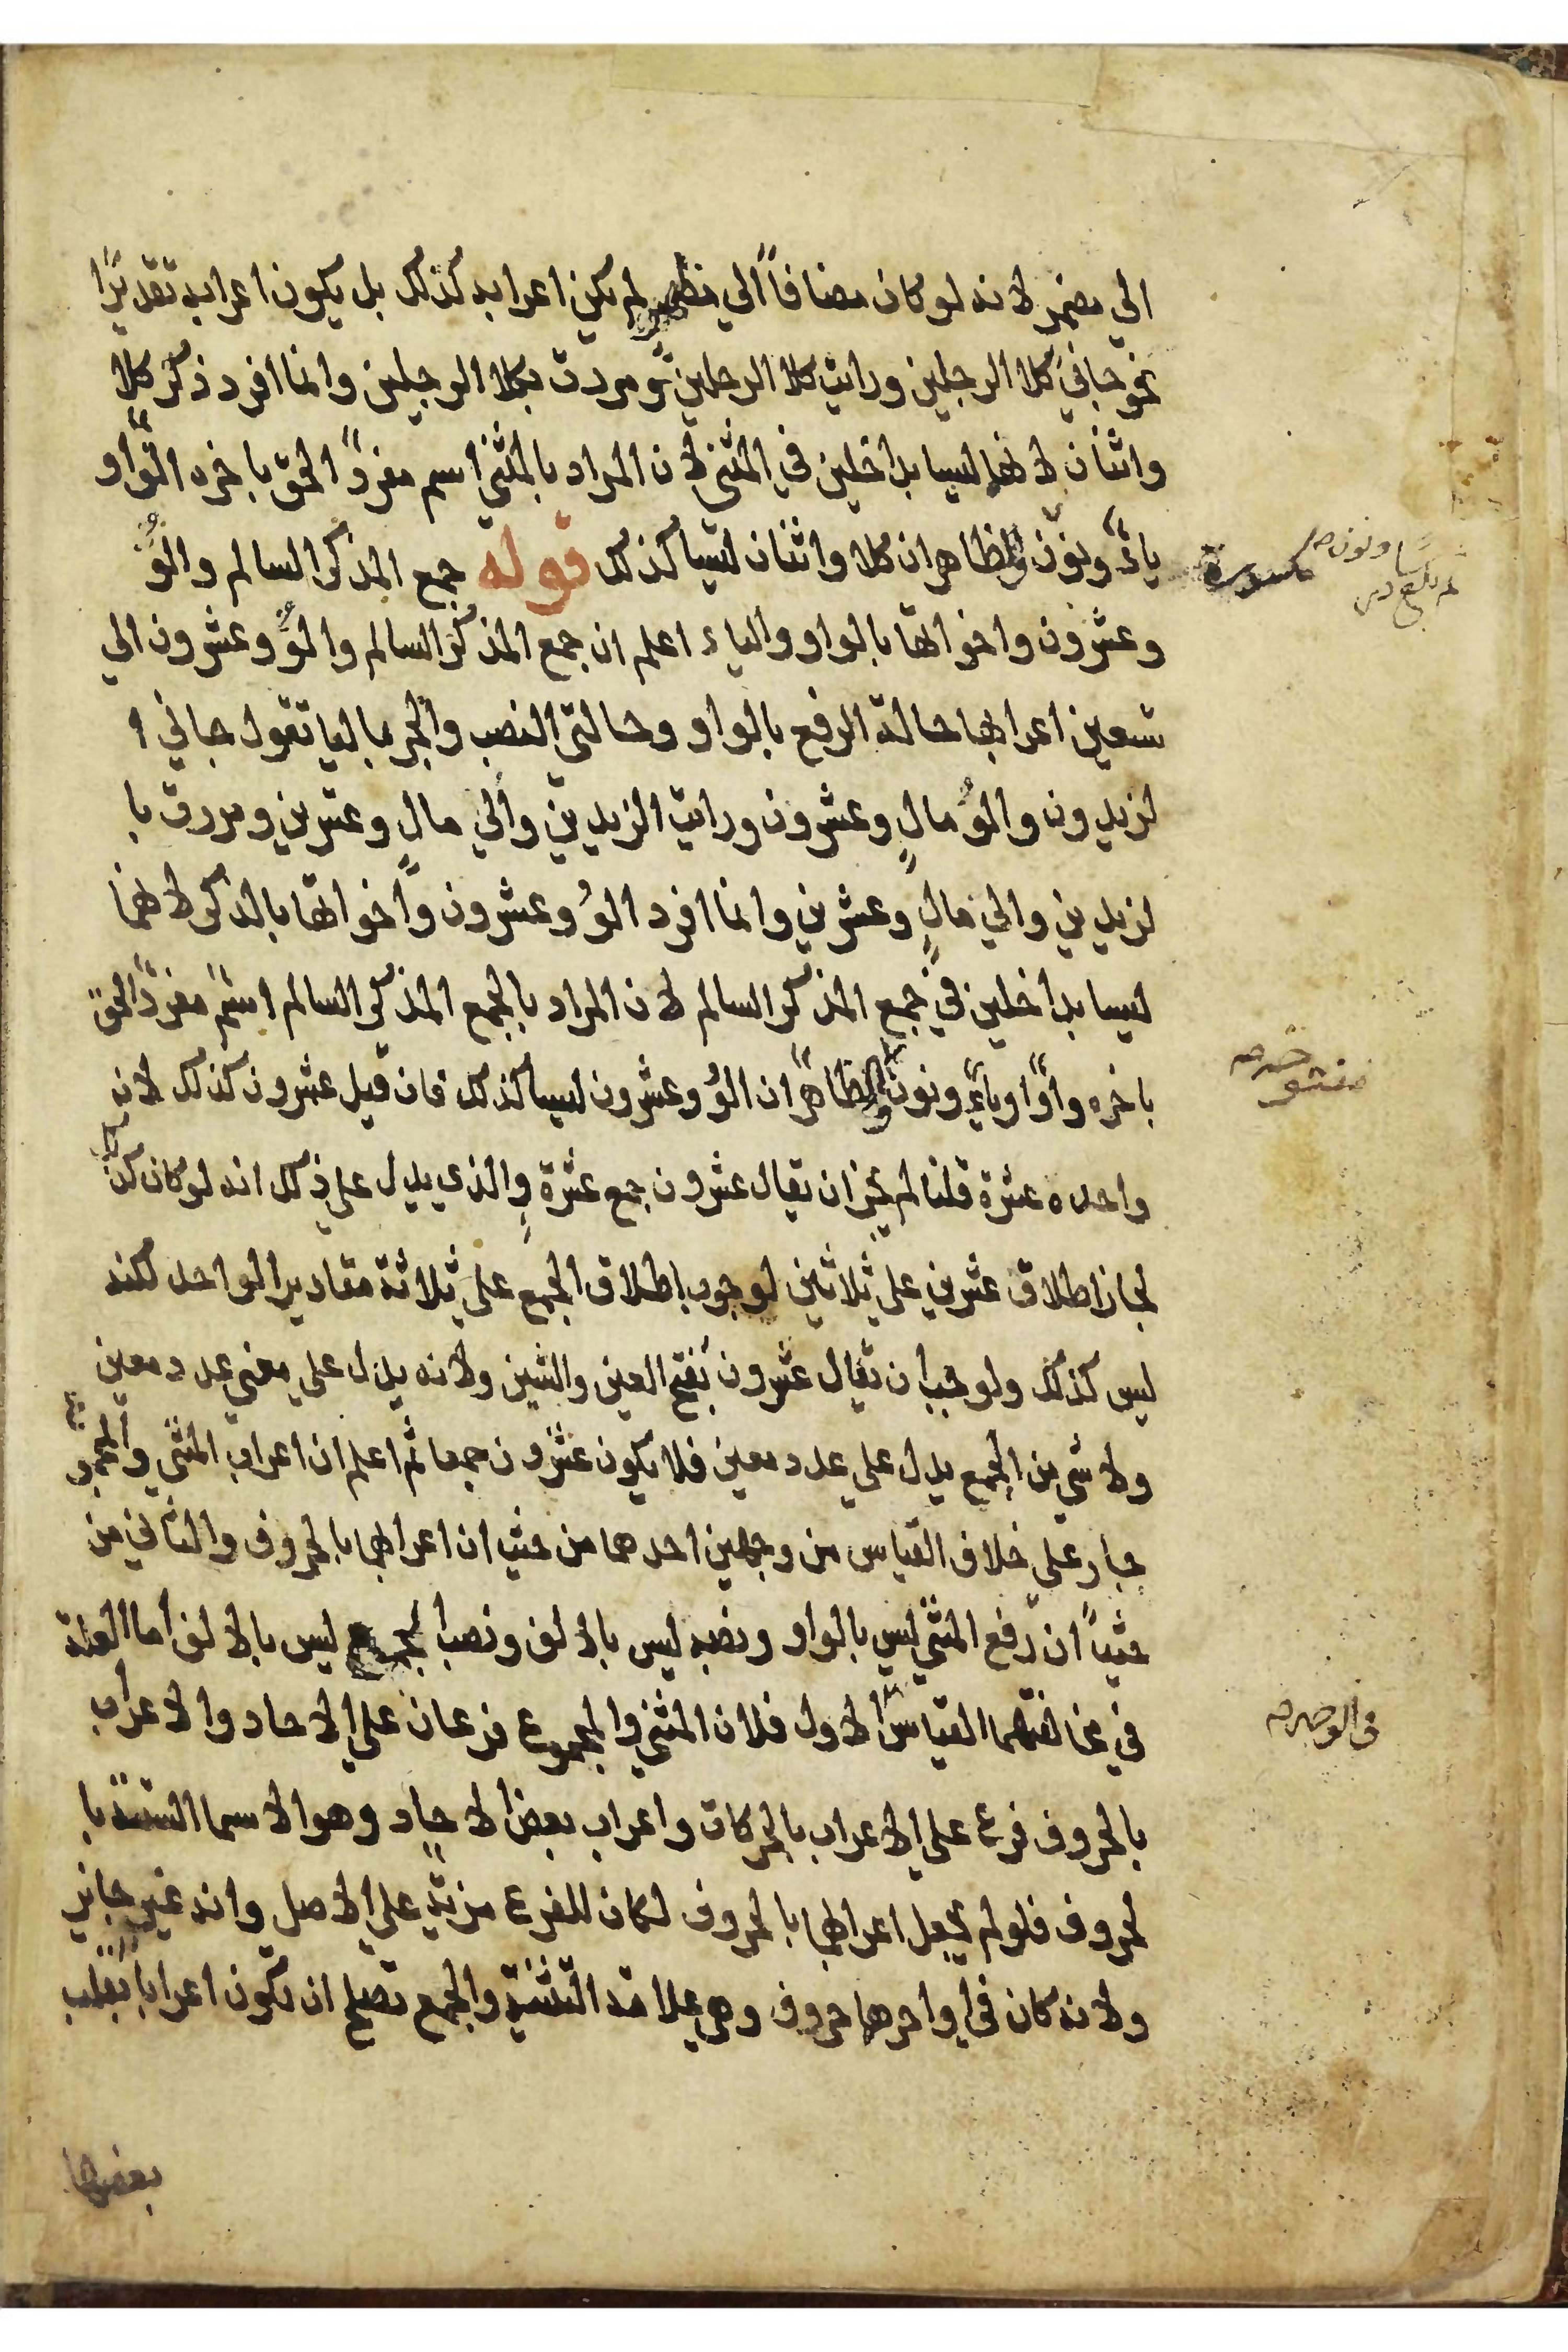 الي مضمر لانه لو كان مضافاً الي مظهر لم يكن اعرابه كذلك بل يكون اعرابه تقديرًا
نحو جاني كلا الرجلين ورايت كلا الرجلين ومررت بكلا الرجلين وانما افرد ذكر كلا
واثنان لانهما ليسا بداخلين في المثني لان المراد بالمثني اسم مفردً الحق باخره الف او
ياءً ونون والظاهر ان كلا واثنان ليسا كذلك قوله جمع المذكر السالم والوُ
وعشرون واخواتها بالواو والياء اعلم ان جمع المذكر السالم والوُ وعشرون الي
تسعين اعرابها حالة الرفع بالواو وحالتي النصب والجر بالياتقول جاني ا
لزيدون والوُ مالٍ وعشرون ورايت الزيدين والي مالٍ وعشرين ومررت با
لزيدين والي مالٍ وعشرين وانما افرد الوُ وعشرون واخواتها بالذكر لانهما
ليسا بداخلين في جمع المذكر السالم لان المراد بالجمع المذكر السالم اسم مفردً الحق
باخره واوًا وياءً ونون والظاهر ان الوُ وعشرون ليسا كذلك فان قيل عشرون كذلك لان
واحده عشرة قلنا لم يجز ان يقال عشرون جمع عشرة والذي يدل علي ذلك انه لو كان كذلك
لجاز اطلاق عشرين علي ثلاثين لوجوب اطلاق الجمع علي ثلاثة مقادير الواحد لكنه
ليس كذلك ولوجب ان يقال عشرون بفتح العين والشين ولانه يدل علي معني عدد معين
ولا شي من الجمع يدل علي عدد معين فلا يكون عشرون جمعا ثم اعلم ان اعراب المثني والمجموع
جار علي خلاف القياس من وجهين احدهما من حيث ان اعرابهما بالحروف والثاني من
حيث ان رفع المثني ليس بالواو ونصبه ليس بالالف ونصب الجمع ليس بالالف اما العلة
في مخالفتهما القياس الاول فلان المثني والمجموع فرعان علي الاحاد والاعراب
بالحروف فرع علي الاعراب بالحركات واعراب بعض الاحاد وهو الاسما الستة با
لحروف فلو لم يجعل اعرابهما بالحروف لكان للفرع مزية علي الاصل وانه غير جايز
ولانه كان في اواخرها حروف وهي علامة التثنية والجمع تصلح ان تكون اعرابا بقلب
بعضها